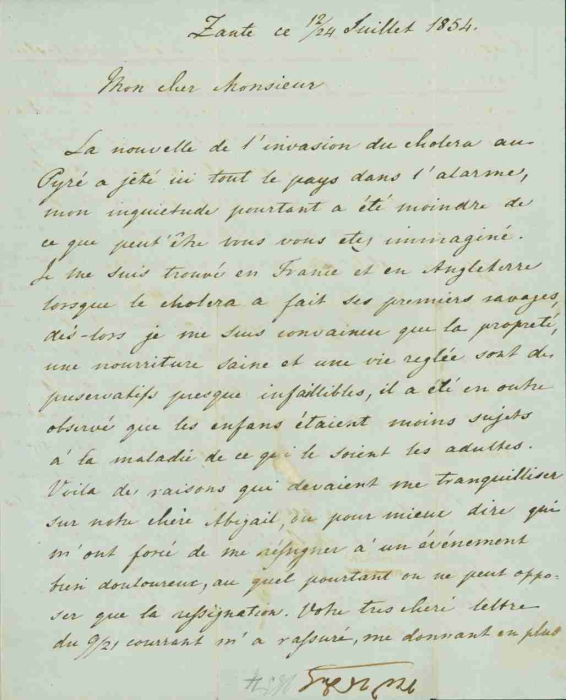 Zante ce 12/24 Juillet 1854.
Mon cher Monsieur
La nouvelle de l'invasion du cholera au
Pyré a jété ici tout le pays dans l'alarme,
mon inquietude pourtant a été moindre de
ce que peut'être vous vous etes immaginé.
Je me suis trouvé en France et en Angleterre
lorsque le cholera a fait ses premiers ravages,
dès-lors je me suis convaincu que la propreté,
une nourriture saine et une vie reglée sont des
preservatifs presque infaillibles, il a été en outre
observé que les enfans étaient moins sujets
à la maladie de ce qu'i le soient les adultes.
Voila des raisons qui devaient me tranquilliser
sur notre chère Abigail, ou pour mieux dire qui
m'ont forcé de me résigner à un événement
bien douloureux, au quel pourtant on ne peut oppo-
ser que la ressignation. Votre tres cheré lettre
du 9/21 courrant m'a rassuré, me donnant en plus